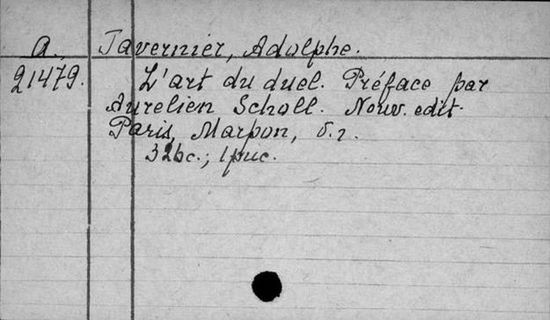 A. Tavernier, Adolphe.
21479. L'art du duel. Préface par
Aurelien Scholl. Nouv. edit.
Paris, Marpon, б.г.
326с.; 1рис.